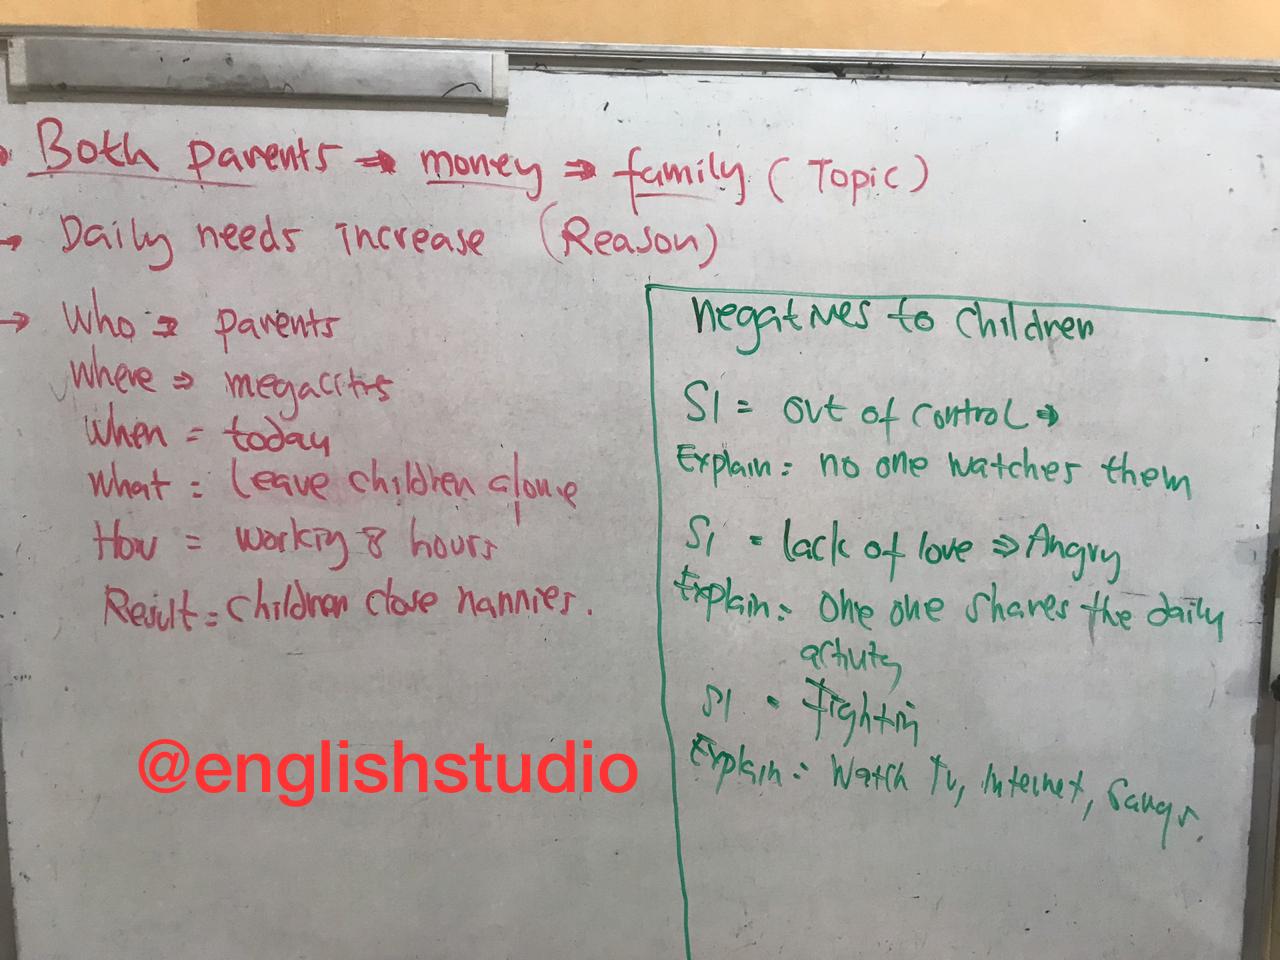 → Both parents → money ⇒ family ( Topic )
→ Daily needs increase (Reason)
→ Who ⇒ parents
Where ⇒ megacities
When = today
What = Leave children alone
How = working 8 hours
Result = children close nannies.
negatives to children
S1 = out of control ⇒
Explain = no one watches them
S1 = lack of love ⇒ Angry
Explain = One one shares the daily
activity
S1 = Fightin
Explain = Watch Tv, internet,
@englishstudio